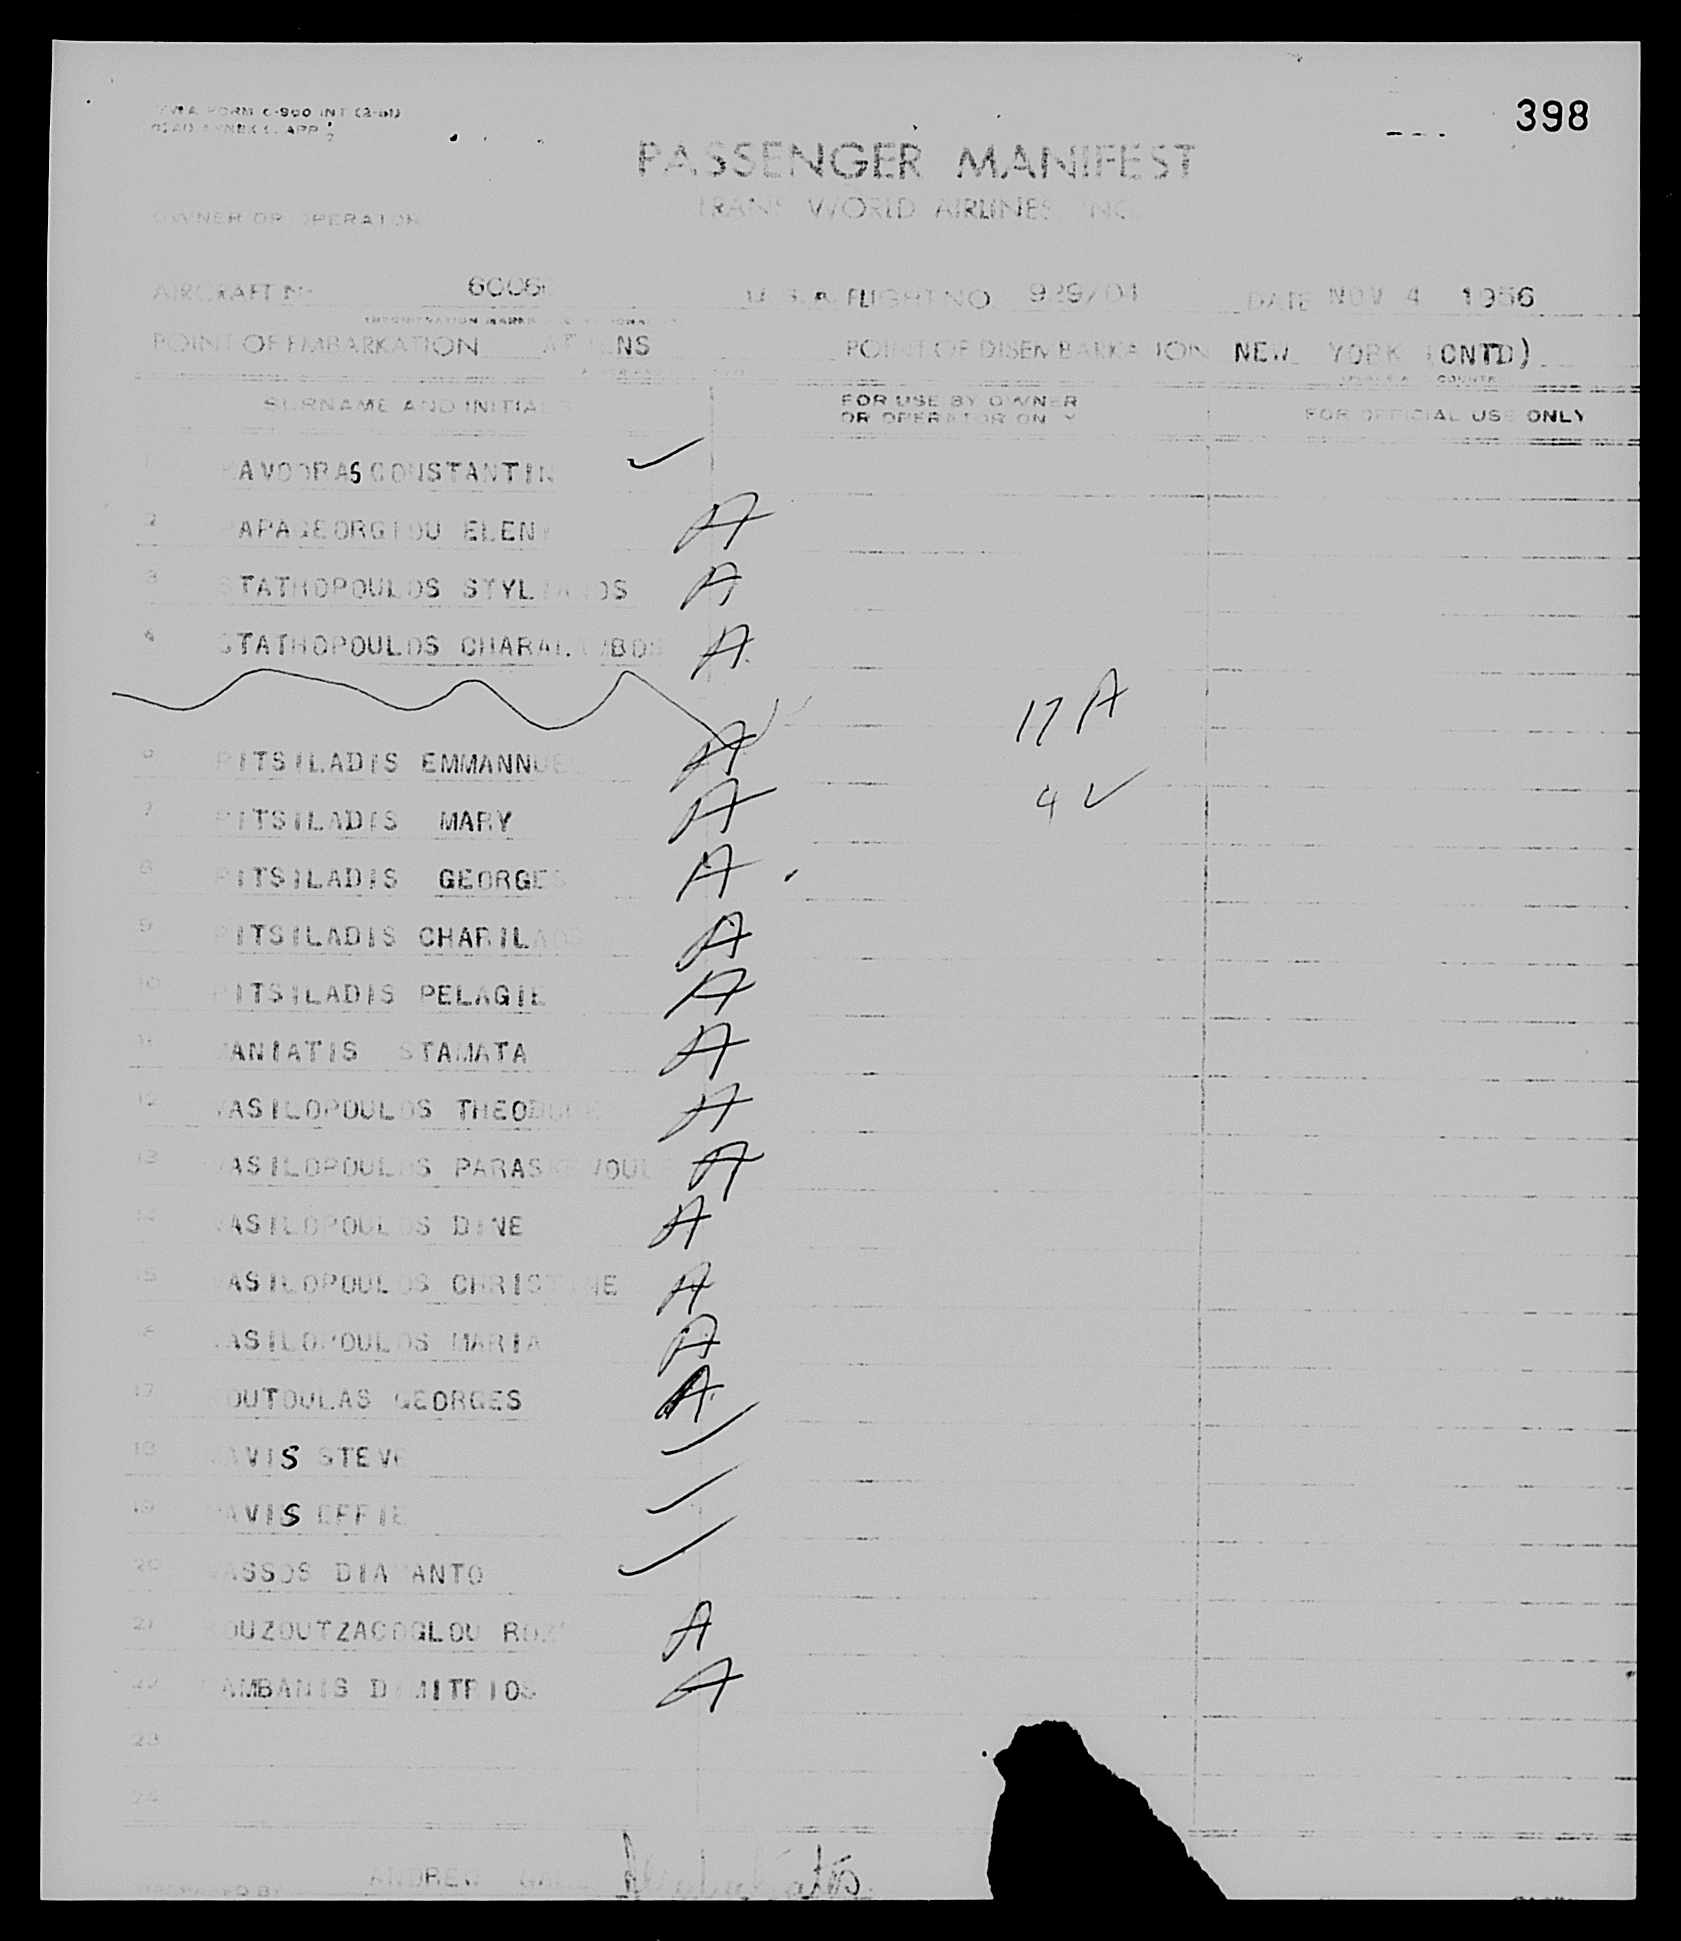 398
TWA FORM C-900 INT (2-51)
ICAO ANNEX 9, APP 2
PASSENGER MANIFEST
OWNER OR OPERATOR TRANS WORLD AIRLINES INC.
AIRCRAFT Nº U. S. A. FLIGHT NO. 929/01 DATE NOV 4 1956
POINT OF EMBARKATION ATHENS POINT OF DISEMBARKATION NEW YORK (CNTD)
SURNAME AND INITIALS FOR USE BY OWNER OR OPERATOR ONLY FOR OFFICIAL USE ONLY
1 CONSTANTIN ✓
2 PAPAGEORGIOU ELENI A
3 STATHOPOULOS STYLIANOS A
4 STATHOPOULOS CHARALAMBOS A
17 A
6 PITSILADIS EMMANNUEL A
4 ✓
7 PITSILADIS MARY A
8 PITSILADIS GEORGES A
9 PITSILADIS CHARILAOS A
10 PITSILADIS PELAGIE A
11 STAMATA A
12 VASILOPOULOS THEODORE A
13 VASILOPOULOS A
14 VASILOPOULOS DINE A
15 VASILOPOULOS CHRISTINE A
16 VASILOPOULOS MARIA A
17 GEORGES A
18 STEVE ✓
19 EFFIE ✓
20 ✓
21 A
22 DIMITRIOS A
23
24
PREPARED BY ANDREW